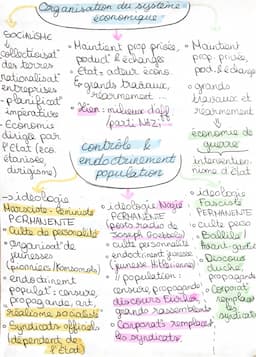 Organisation du système
économique
SOCIALISME
collectivisat°
des terres
nationalisat°
entreprises
- planificat°
impérative
- Economie
dirigée par
l'Etat (éco.
étatisée,
dirigisme)
• Maintient prop privée,
product° & échange
• Etat = acteur écono.
& grands travaux,
réarmement
• Lien : milieux d'aff
/parti NAZI
• Maintient
prop. privée,
prod. & échange
• grands
travaux et
réarmement
économie de
guerre
intervention-
nisme d'état
contrôle &
endoctrinement
population
→ idéologie
Marxiste-léniniste
PERMANENTE
• Culte de personnalité
• organisat° de
jeunesses
(pionniers/Komsomols)
• endoctrinent
populat° : censure,
propagande, art,
réalisme socialiste
• Syndicats officiels
dépendent de
l'Etat
• idéologie Nazie
PERMANENTE
Joseph Goebbels)
• culte personnalité
• endoctrinent jeunesse
(jeunesse Hitlérienne)
// population :
censure, propagande,
discours Führer
grands rassemblements
• Corporat° remplacent
les syndicats.
• idéologie
Fasciste
PERMANENTE
• culte perso
• Balilla /
Avant-garde
• Discours
duche,
propagande
• Corporat°
remplace
les
syndicats